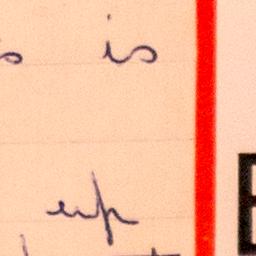 s is
up
E